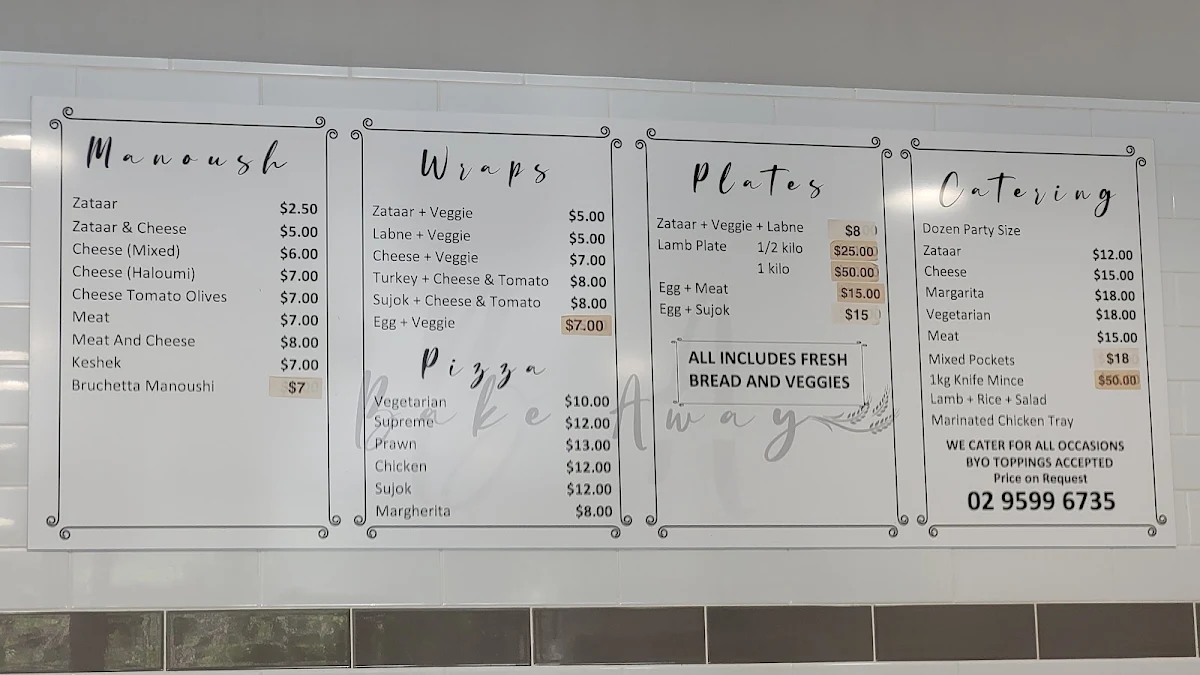 Manoush
Zataar $2.50
Zataar & Cheese $5.00
Cheese (Mixed) $6.00
Cheese (Haloumi) $7.00
Cheese Tomato Olives $7.00
Meat $7.00
Meat And Cheese $8.00
Keshek $7.00
Bruchetta Manoushi $7
Wraps
Zataar + Veggie $5.00
Labne + Veggie $5.00
Cheese + Veggie $7.00
Turkey + Cheese & Tomato $8.00
Sujok + Cheese & Tomato $8.00
Egg + Veggie $7.00
Pizza
Vegetarian $10.00
Supreme $12.00
Prawn $13.00
Chicken $12.00
Sujok $12.00
Margherita $8.00
Plates
Zataar + Veggie + Labne $8
Lamb Plate 1/2 kilo $25.00
1 kilo $50.00
Egg + Meat $15.00
Egg + Sujok $15
ALL INCLUDES FRESH
BREAD AND VEGGIES
Bake Away
Catering
Dozen Party Size
Zataar $12.00
Cheese $15.00
Margarita $18.00
Vegetarian $18.00
Meat $15.00
Mixed Pockets $18
1kg Knife Mince $50.00
Lamb + Rice + Salad
Marinated Chicken Tray
WE CATER FOR ALL OCCASIONS
BYO TOPPINGS ACCEPTED
Price on Request
02 9599 6735